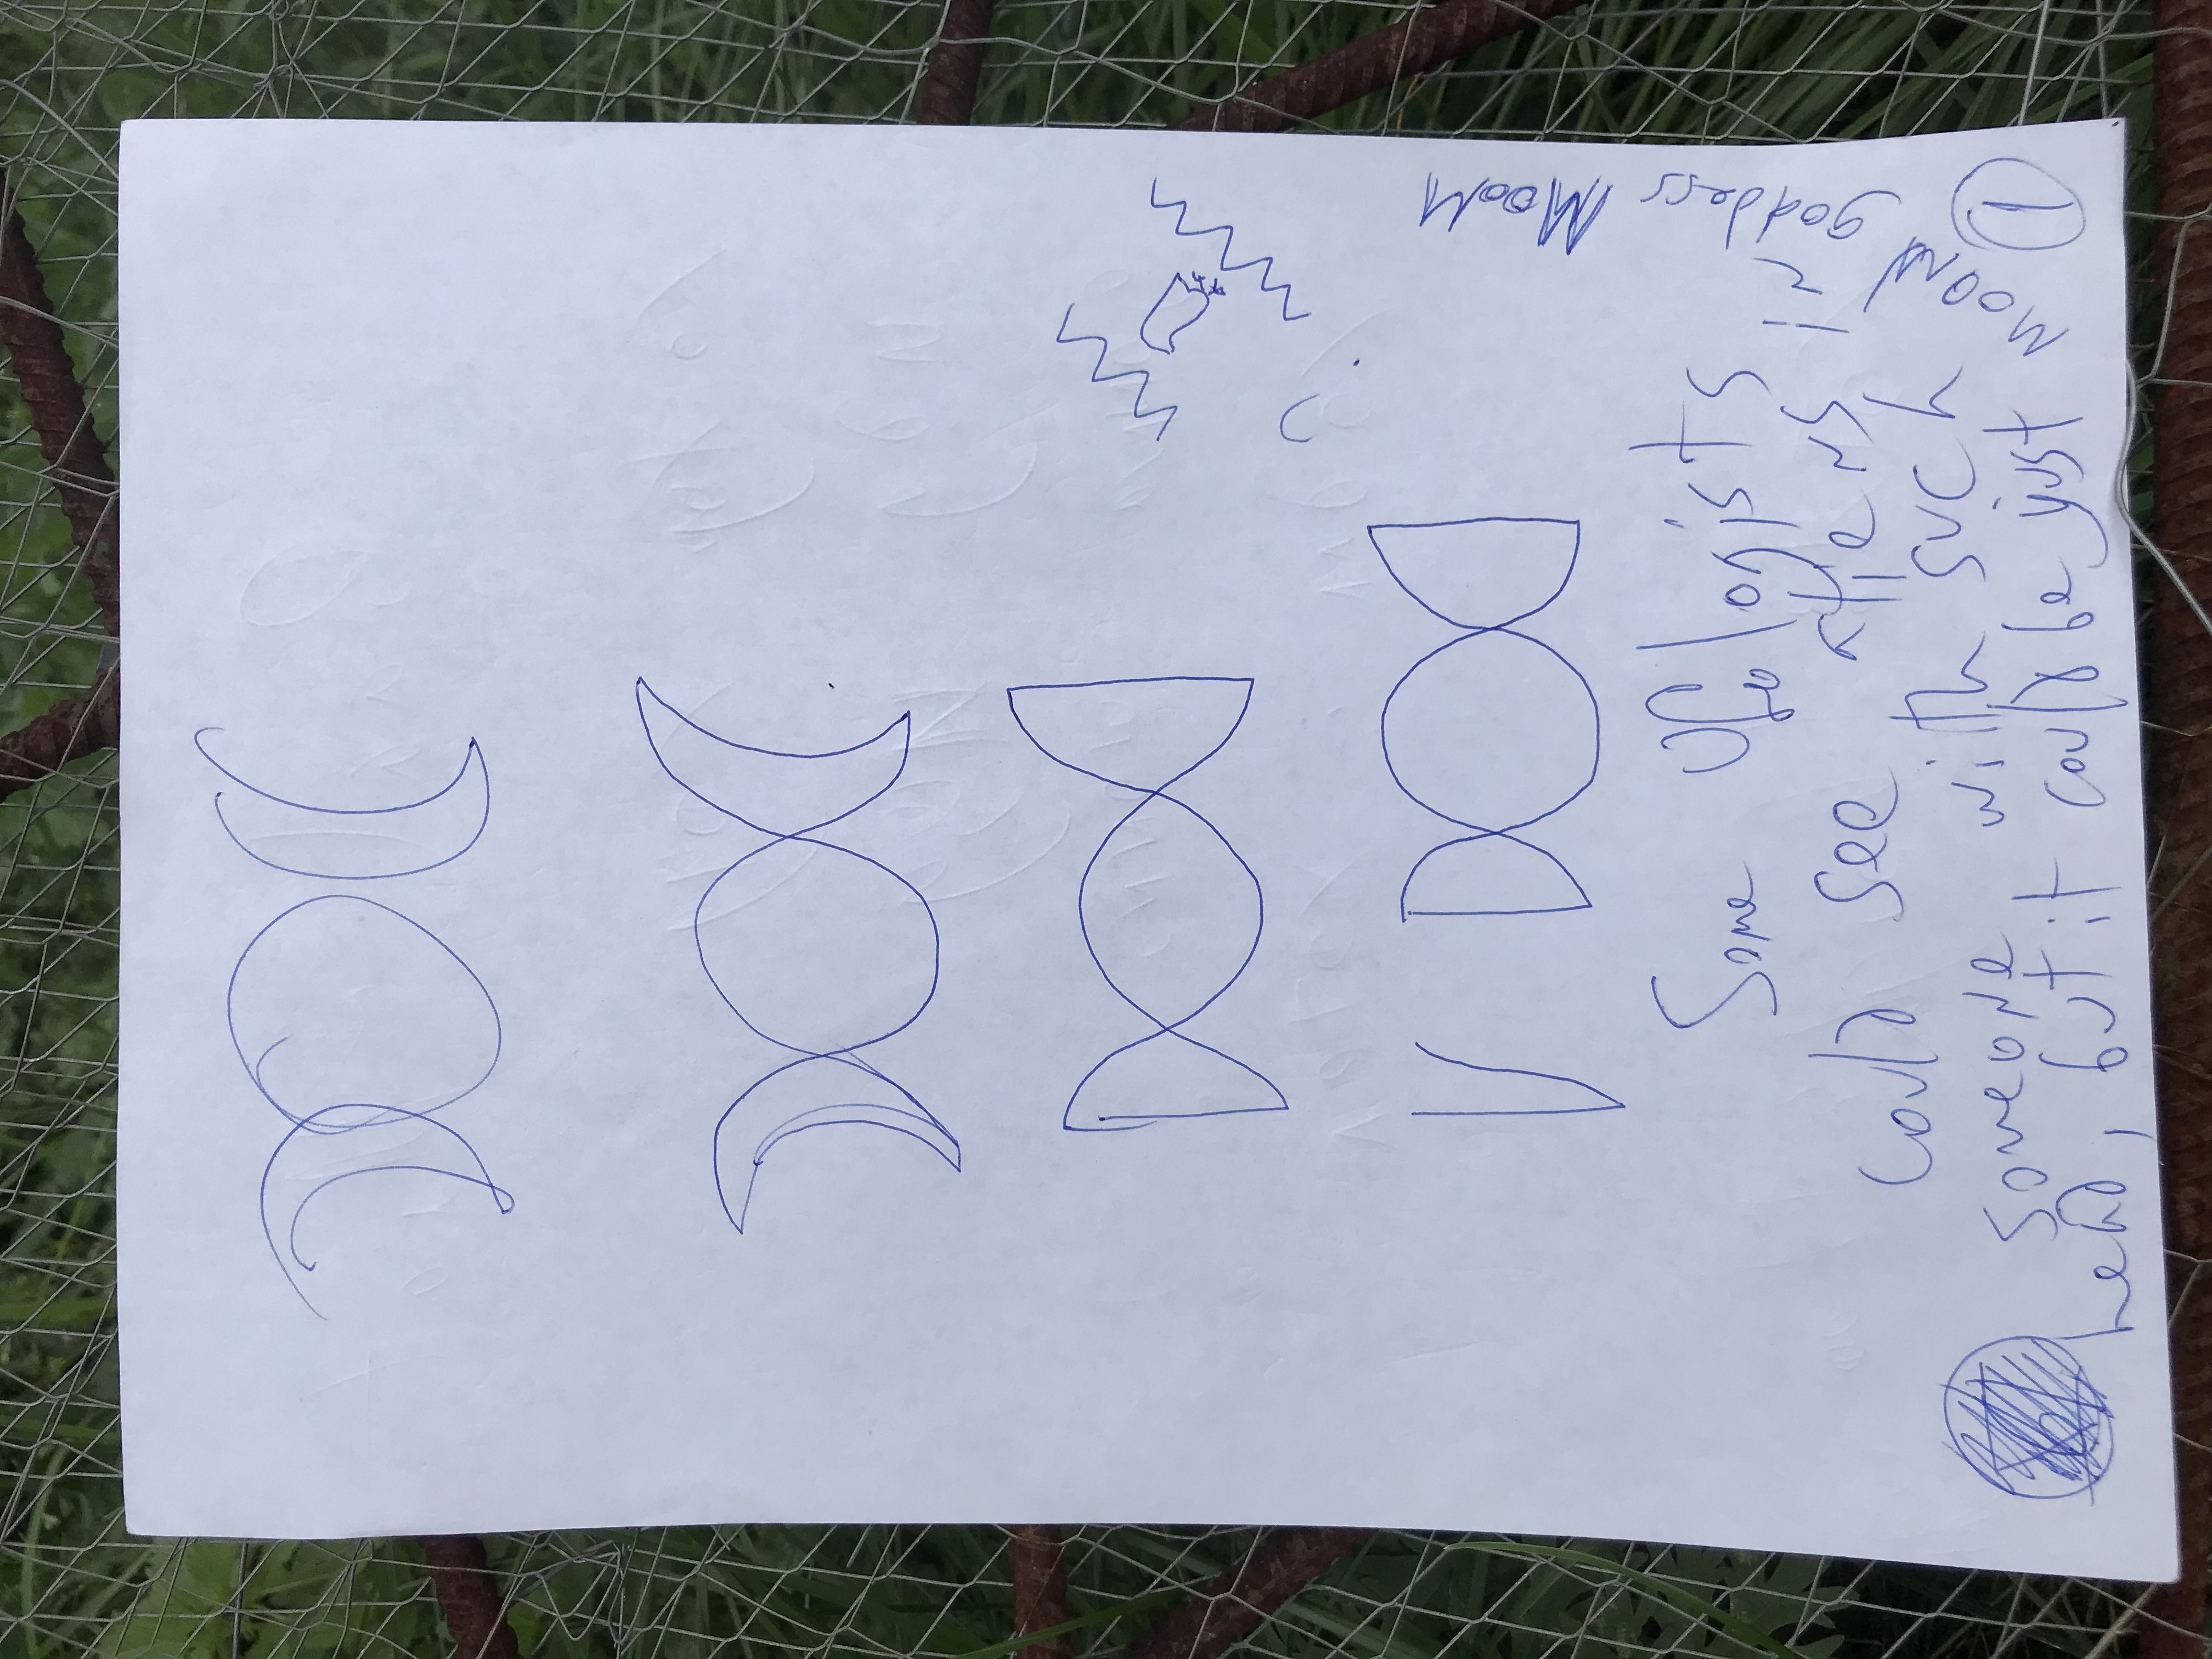 ?
Some Ufologists
could see aliens in
someone with such
head, but it could be just
moon
goddess Moon
1